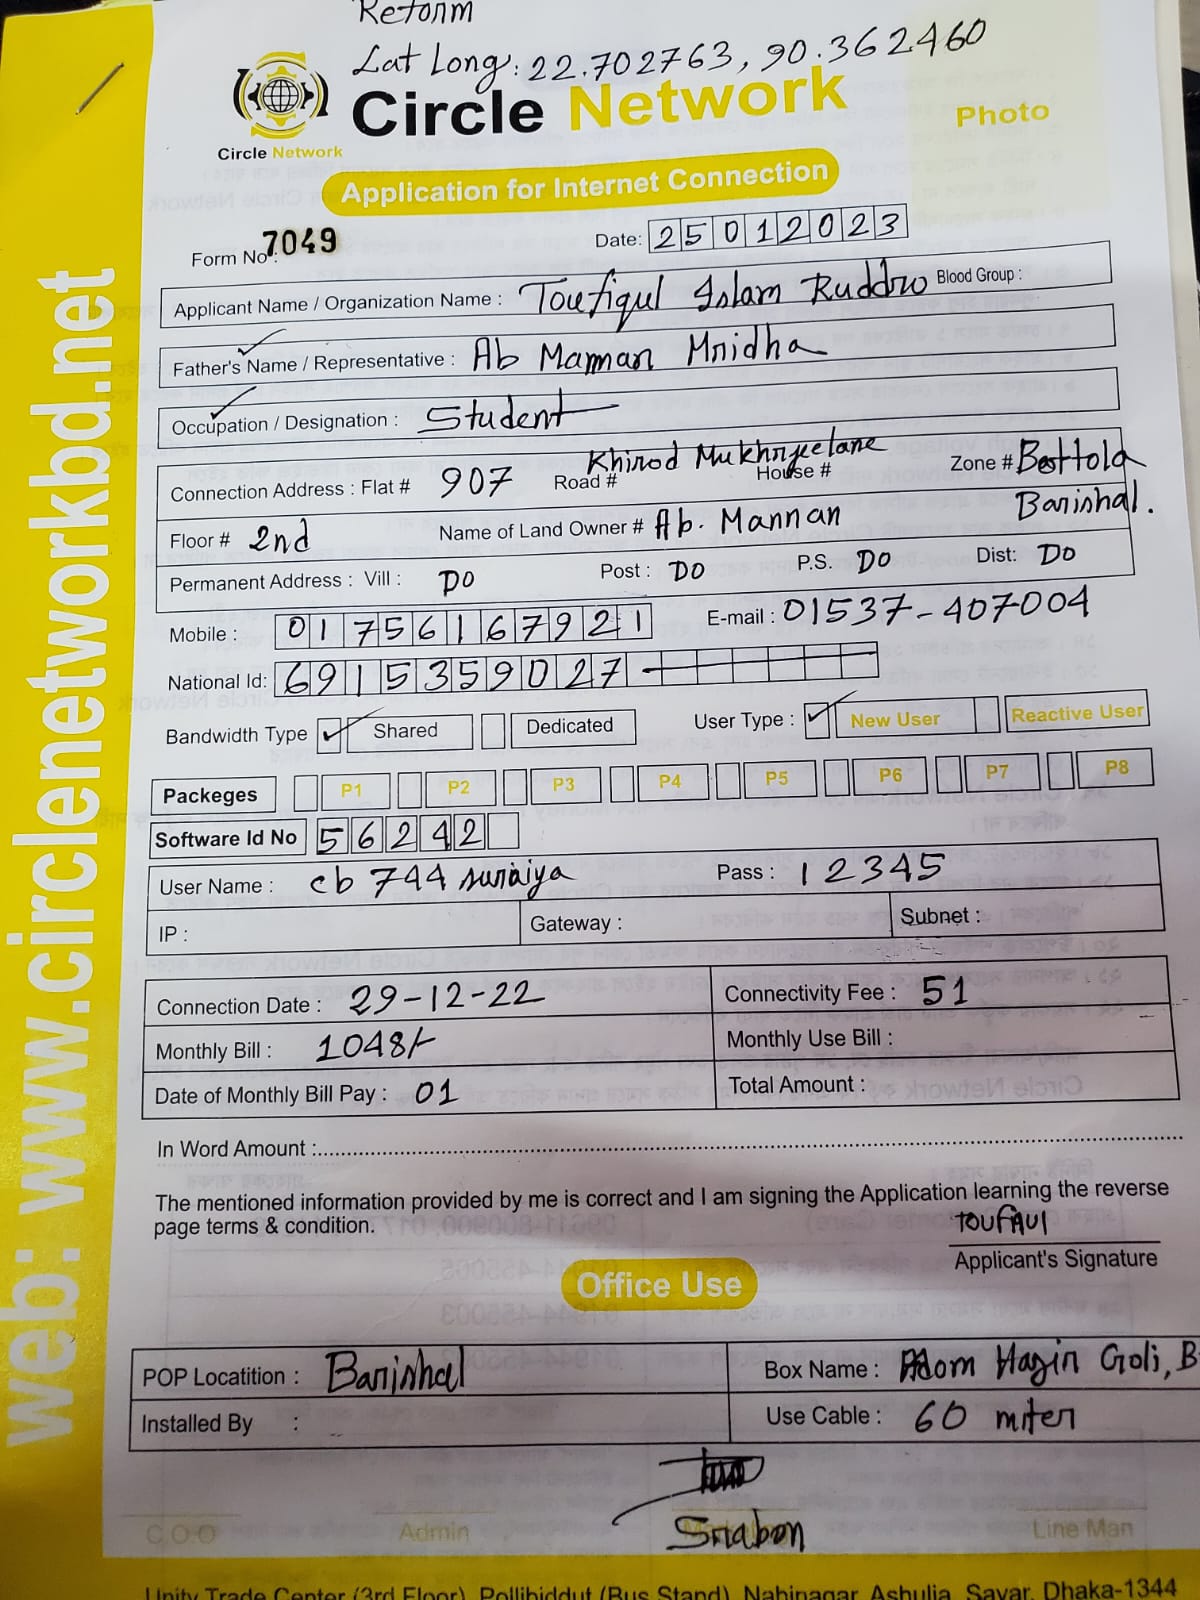 Reform
Lat Long: 22.702763, 90.362460
Circle Network
Circle Network
Photo
Application for Internet Connection
Form No: 7049 Date: 25012023
Applicant Name / Organization Name : Toufiqul Islam Ruddro Blood Group :
Father's Name / Representative : Ab Mannan Mridha
Occupation / Designation : Student
Connection Address : Flat # 907 Road # Khirod Mukhrjeelane House # Zone # Bottola
Floor # 2nd Name of Land Owner # Ab. Mannan Barishal.
Permanent Address : Vill : DO Post : DO P.S. DO Dist: DO
Mobile : 01756167921 E-mail : 01537-407004
National Id: 6915359027
Bandwidth Type Shared Dedicated User Type : New User Reactive User
Packeges P1 P2 P3 P4 P5 P6 P7 P8
Software Id No 56242
User Name : cb744suraiya Pass : 12345
IP : Gateway : Subnet :
Connection Date : 29-12-22 Connectivity Fee : 51
Monthly Bill : 1048/- Monthly Use Bill :
Date of Monthly Bill Pay : 01 Total Amount :
In Word Amount :
The mentioned information provided by me is correct and I am signing the Application learning the reverse
page terms & condition.
TOUFIQUl
Applicant's Signature
Office Use
POP Locatition : Barishal Box Name : Adom Hagir Goli, B
Installed By : Use Cable : 60 miter
Srabon
C.O.O Admin Line Man
Unity Trade Center (3rd Floor), Pollibiddut (Bus Stand), Nabinagar, Ashulia, Savar, Dhaka-1344
web: www.circlenetworkbd.net